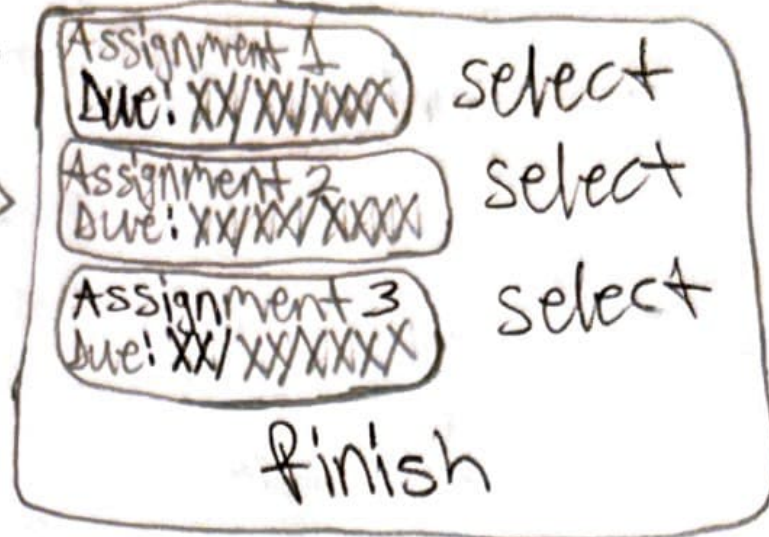 Assignment 1
Due: XX/XX/XXXX
select
Assignment 2
Due: XX/XX/XXXX
select
Assignment 3
Due: XX/XX/XXXX
select
finish